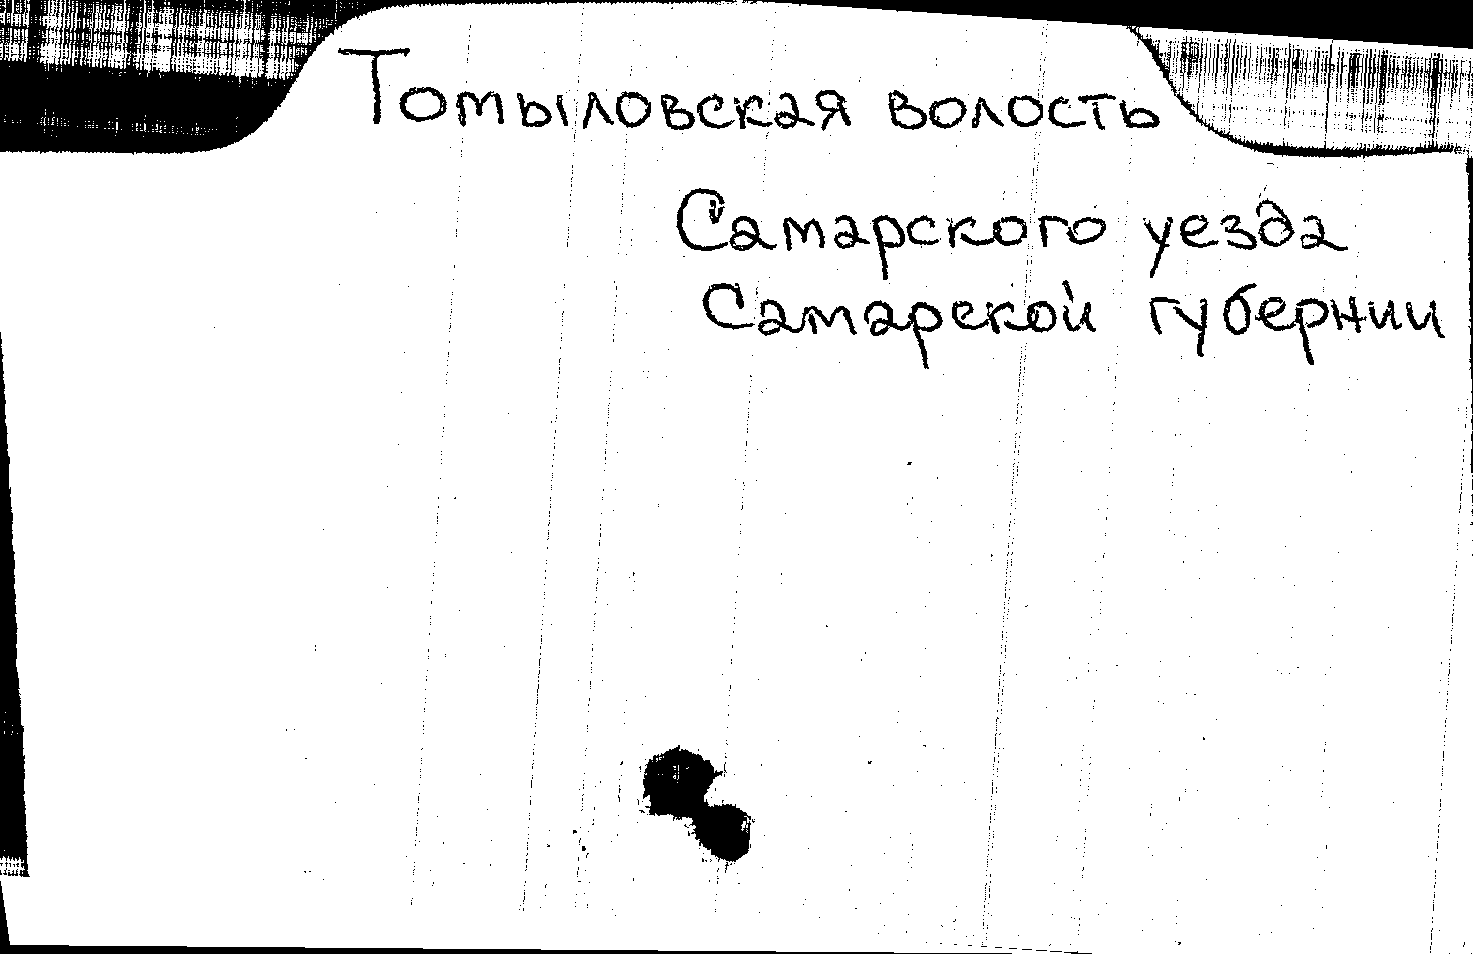 Томыловская волость
Самарского уезда
Самарской губернии